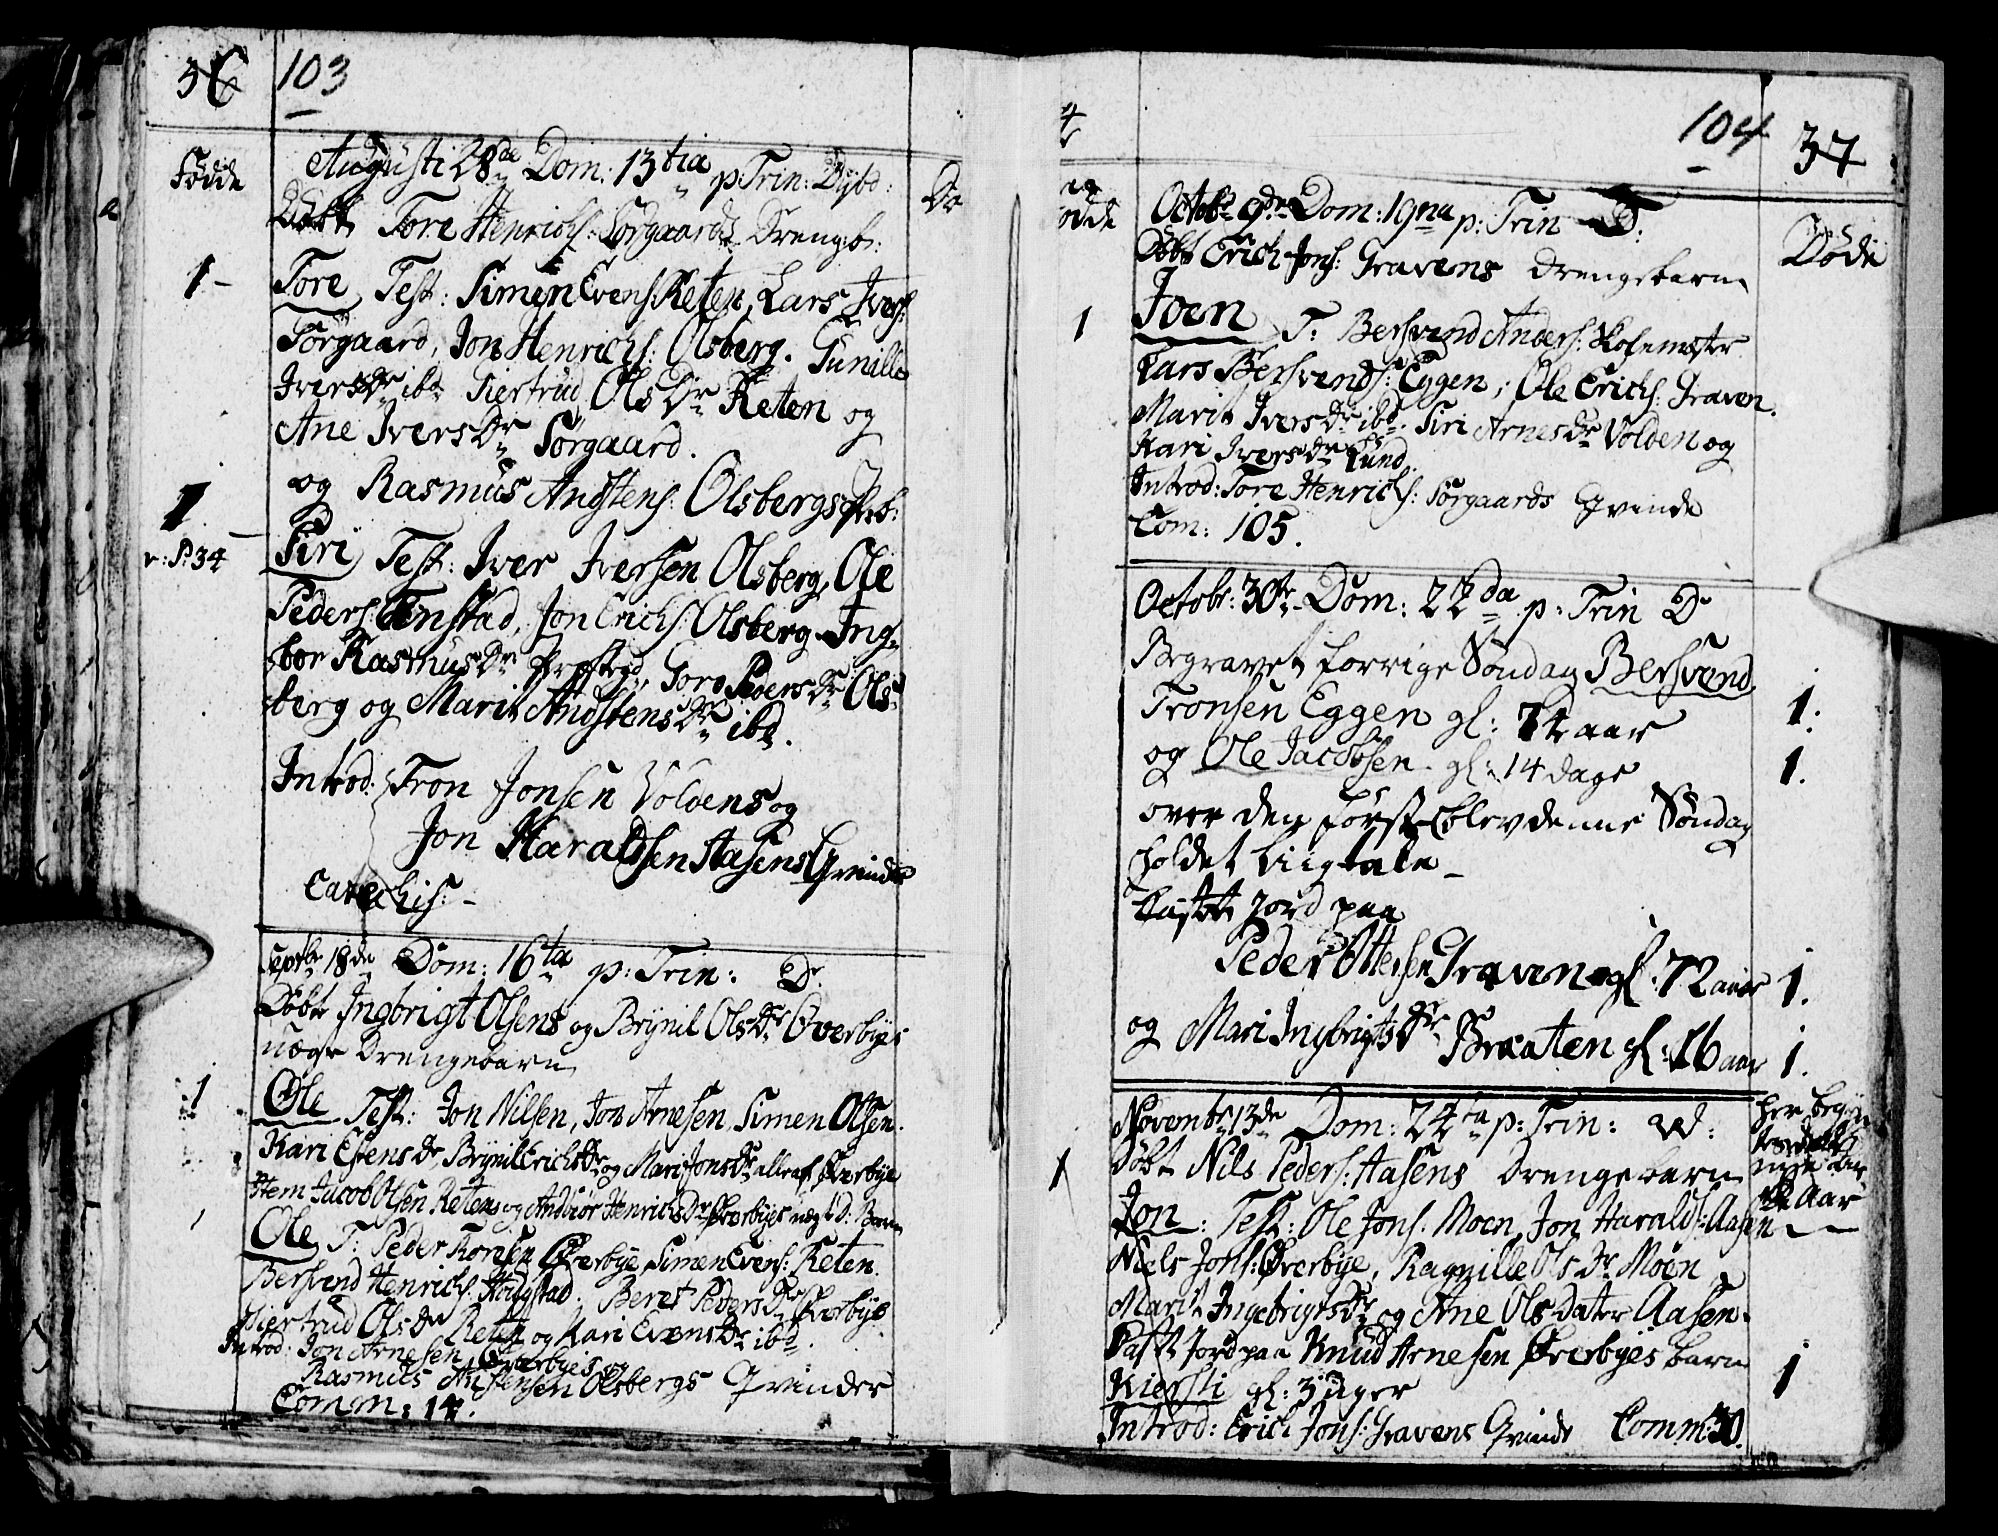 36 103
Fødde
Augusti 28de Dom: 13tia p: Trin:
Døbt Tore Henrichs: Sørgaards Drengeb:
1 - Tore Test: Simen Evens: Reten, Lars Ivers:
Sørgaard, Jon Henrichs: Olsberg. Gunille
Iversdr ibd Giertrud Olsdr Reten og
Ane Iversdr Sørgaard.
og Rasmus Andstens: Olsbergs
1 Siri Test: Iver Iversen Olsberg, Ole
v: P: 34
Peders: Tenstad, Jon Erichs: Olsberg Ing-
bor Rasmusdr Goro Pedersdr Ols-
berg og Marit Andstensdr ibd.
Introd: Tron Jonsen Voldens og
Jon Haraldsen Aasens Qvinder
Catechis: -
Septbr 18de Dom: 16ta p: Trin: D.
Døbt Ingbrigt Olsens og Brynil Olsdr Overbyes
uægte Drengebarn
1 Ole Test: Jon Nilsen, Jon Arnesen, Simen Olsen.
Kari Estensdr, Brynil Erichsdr og Mari Jonsdr alle af Overbye
Item Jacob Olsen Retens og Andbiør Henrichsdr Overbyes uægte D: Barn
Ole T: Peder Overbye, Simen Evens: Reten.
Bersvend Henrichs: Beret Pedersdr Overbye
Giertrud Olsdr Reten og Kari Evensdr ibd.
Introd: Jon Arnesen Overbyes og
Rasmus Andstensen Olsbergs Qvinder
Comm: 14.
104 37
Døde
Octobr 9de Dom: 19na p: Trin
Døbt Erich Jons: Gravens Drengebarn
1 Joen T: Bersvend Anders: Skolemester
Lars Bersvends: Eggen, Ole Erichs: Graven.
Marit Iversdr ibd. Siri Arnesdr Volden og
Kari Iversdr Lund.
Introd: Tore Henrichs: Sørgaards Qvinde
Com: 105.
Octobr: 30te Dom: 22da p: Trin D
Begravet forrige Søndag Bersvend
Tronsen Eggen gl: 74 aar 1.
og Ole Jacobsen gl: 14 dage 1.
over den første blev denne Søndag
holdet Liigtale
Kastet Jord paa
Peder Ottersen Graven gl: 72 aar 1.
og Mari Ingbrigtsdr Braaten gl: 16 aar 1.
Novembr 13de Dom: 24ta p: Trin:
her begyn-
1 Døbt Nils Peders: Aasens Drengebarn
nye
Aar
Jon: Test: Ole Jons: Moen, Jon Haralds: Aasen
Niels Jons: Øverbye, Ragnille Olsdr Moen
Marit Ingebrigtsdr og Ane Olsdater Aasen.
Kast Jord paa Knud Arnesen Øverbyes barn
Kiersti gl: 3 uger 1
Introd: Erich Jons: Gravens Qvinde Comm: 30.